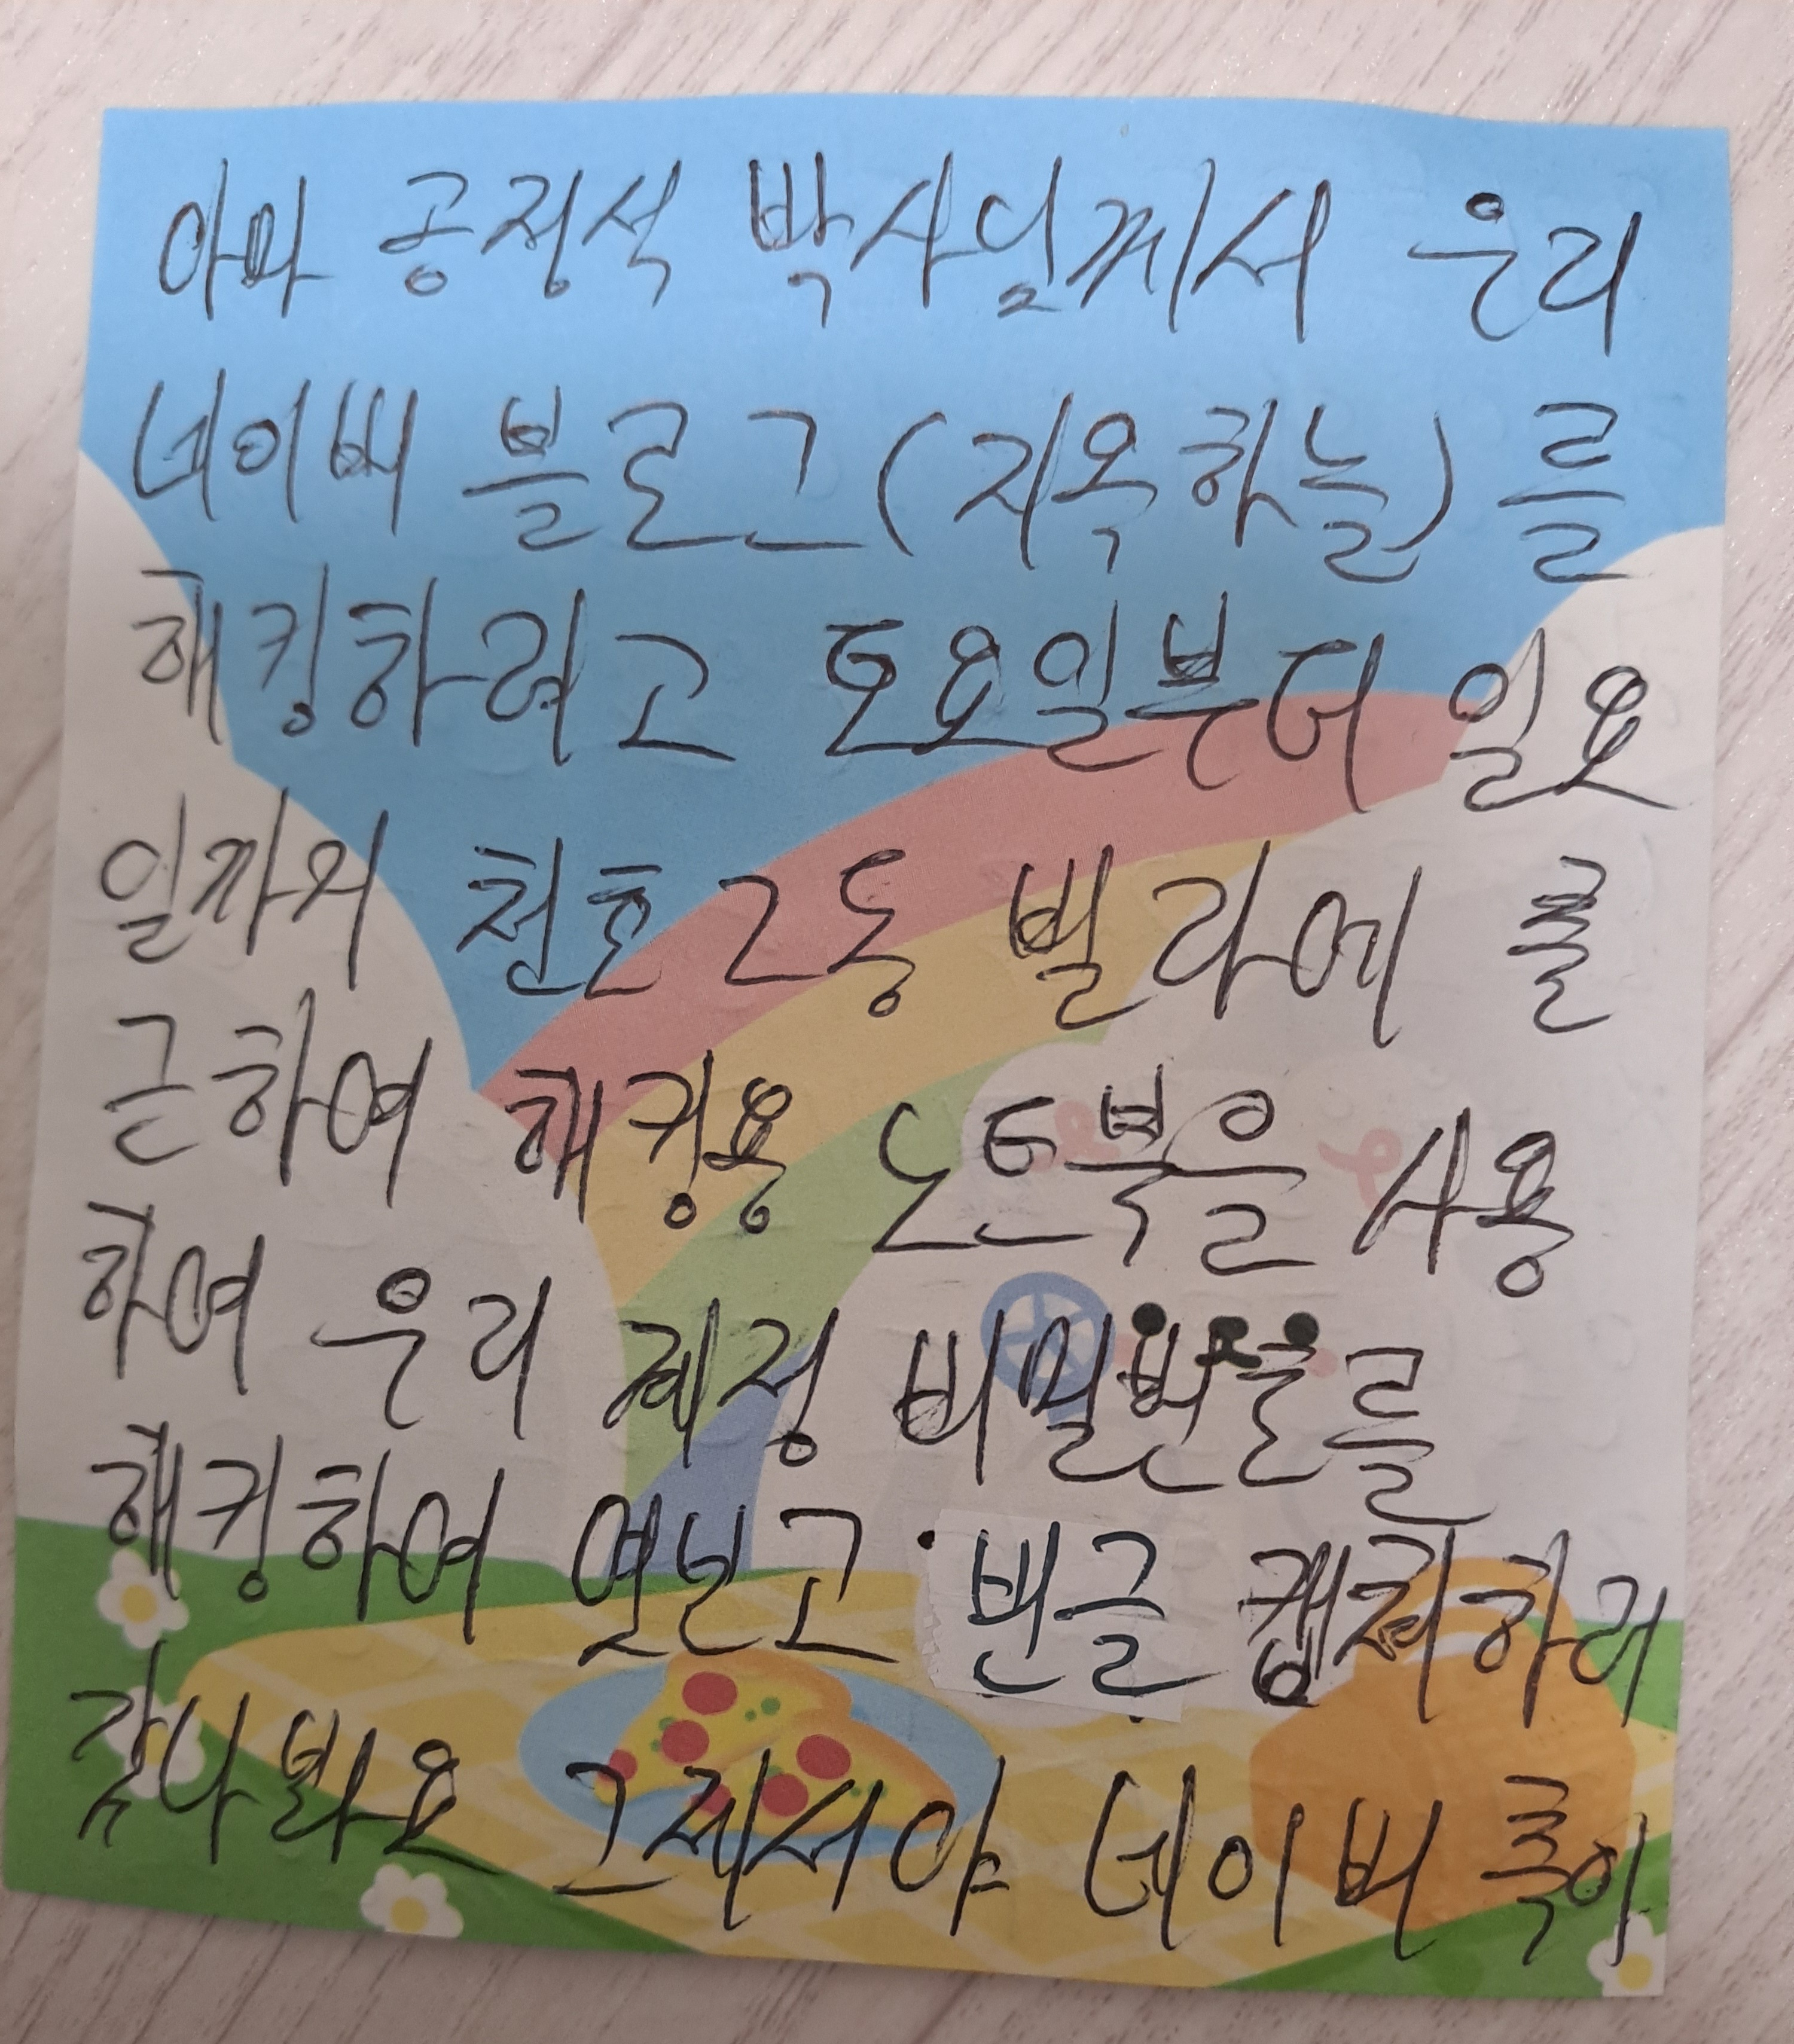 아마 공정석 박사님께서 우리
네이버 블로그(지옥하늘)를
해킹하려고 토요일부터 일요
일까지 천호2동 빌라에 출
근하여 해킹용 노트북을 사용
하여 우리 계정 비밀번호를
해킹하여 엿보고 빈글 캡쳐하러
갔나봐요 그제서야 네이버 측이